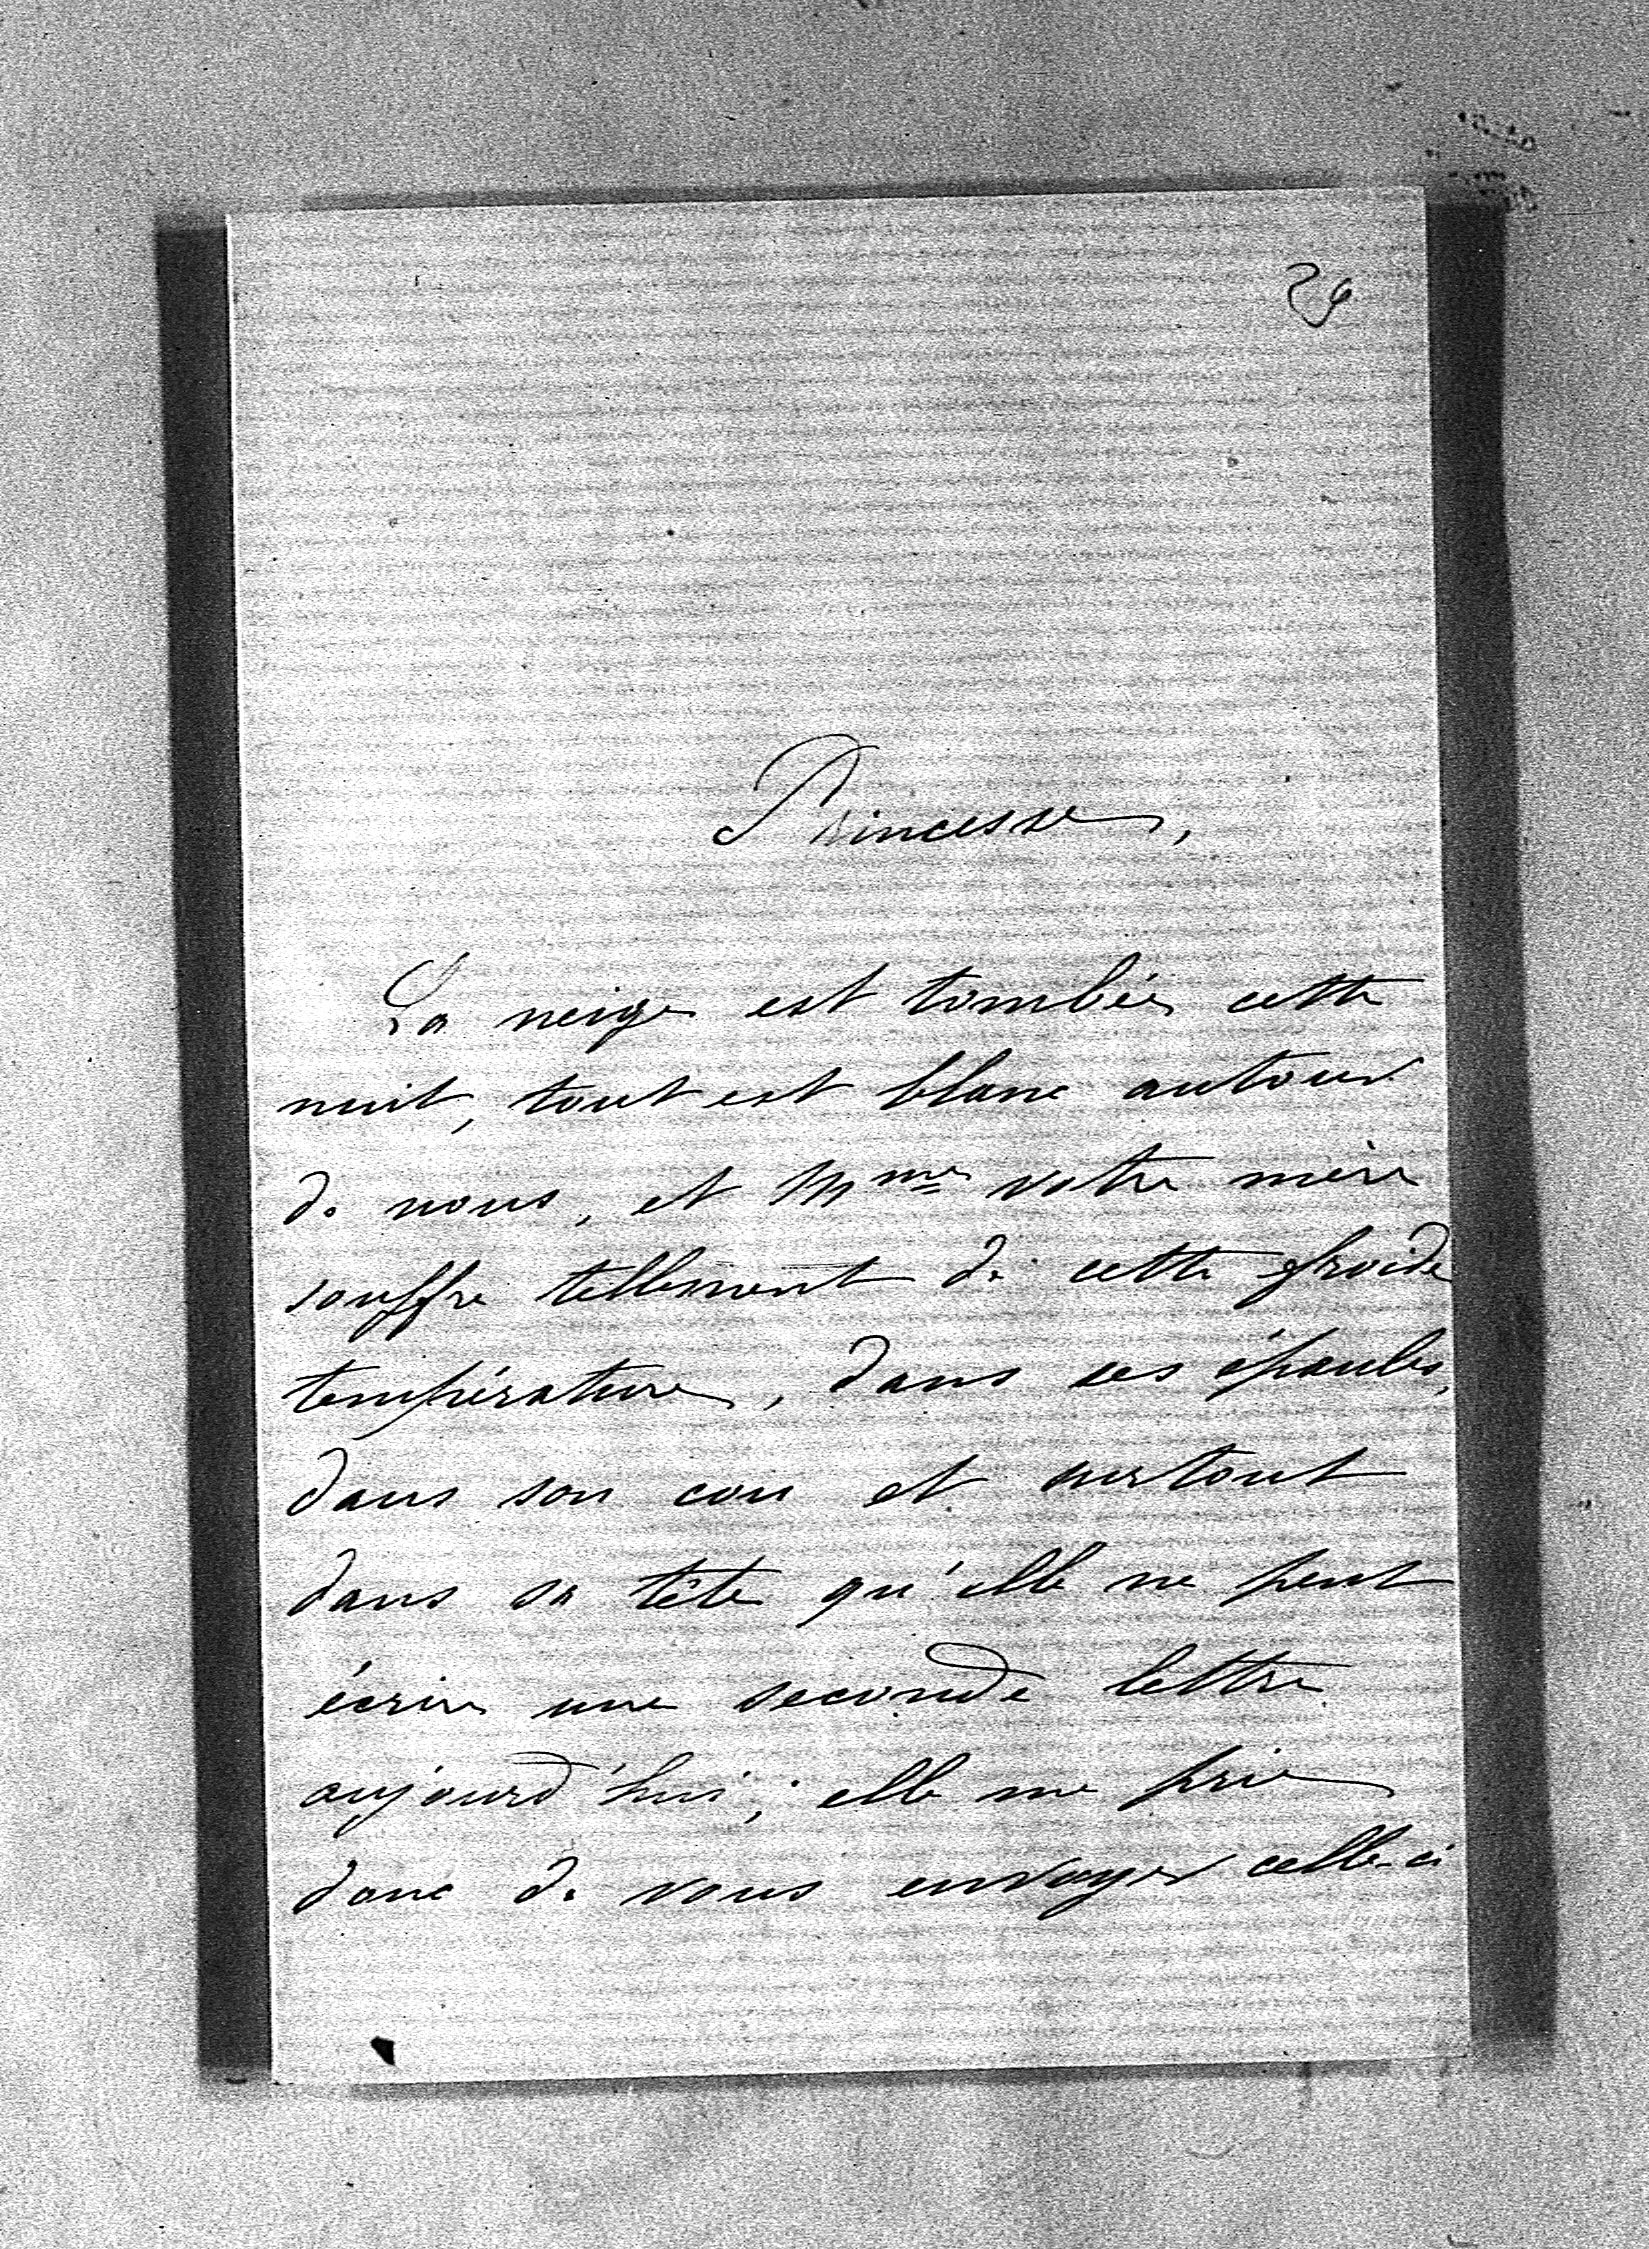 Princesse,
La neige est tombée cette
nuit, tout est blanc autour
de nous, et Mme votre mère
souffre tellement de cette froide
température, dans ses épaules,
dans son cou et surtout
dans sa tête qu'elle ne peut
écrire une seconde lettre
aujourd'hui; elle me prie
donc de vous envoyer celle-ci